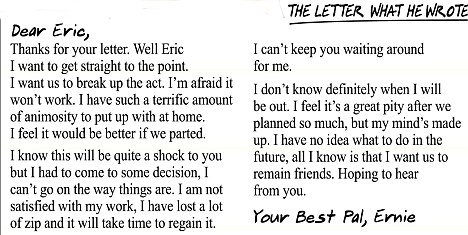 THE LETTER WHAT HE WROTE
Dear Eric,
Thanks for your letter. Well Eric
I want to get straight to the point.
I want us to break up the act. I'm afraid it
won't work. I have such a terrific amount
of animosity to put up with at home.
I feel it would be better if we parted.
I know this will be quite a shock to you
but I had to come to some decision, I
can't go on the way things are. I am not
satisfied with my work, I have lost a lot
of zip and it will take time to regain it.
I can't keep you waiting around
for me.
I don't know definitely when I will
be out. I feel it's a great pity after we
planned so much, but my mind's made
up. I have no idea what to do in the
future, all I know is that I want us to
remain friends. Hoping to hear
from you.
Your Best Pal, Ernie